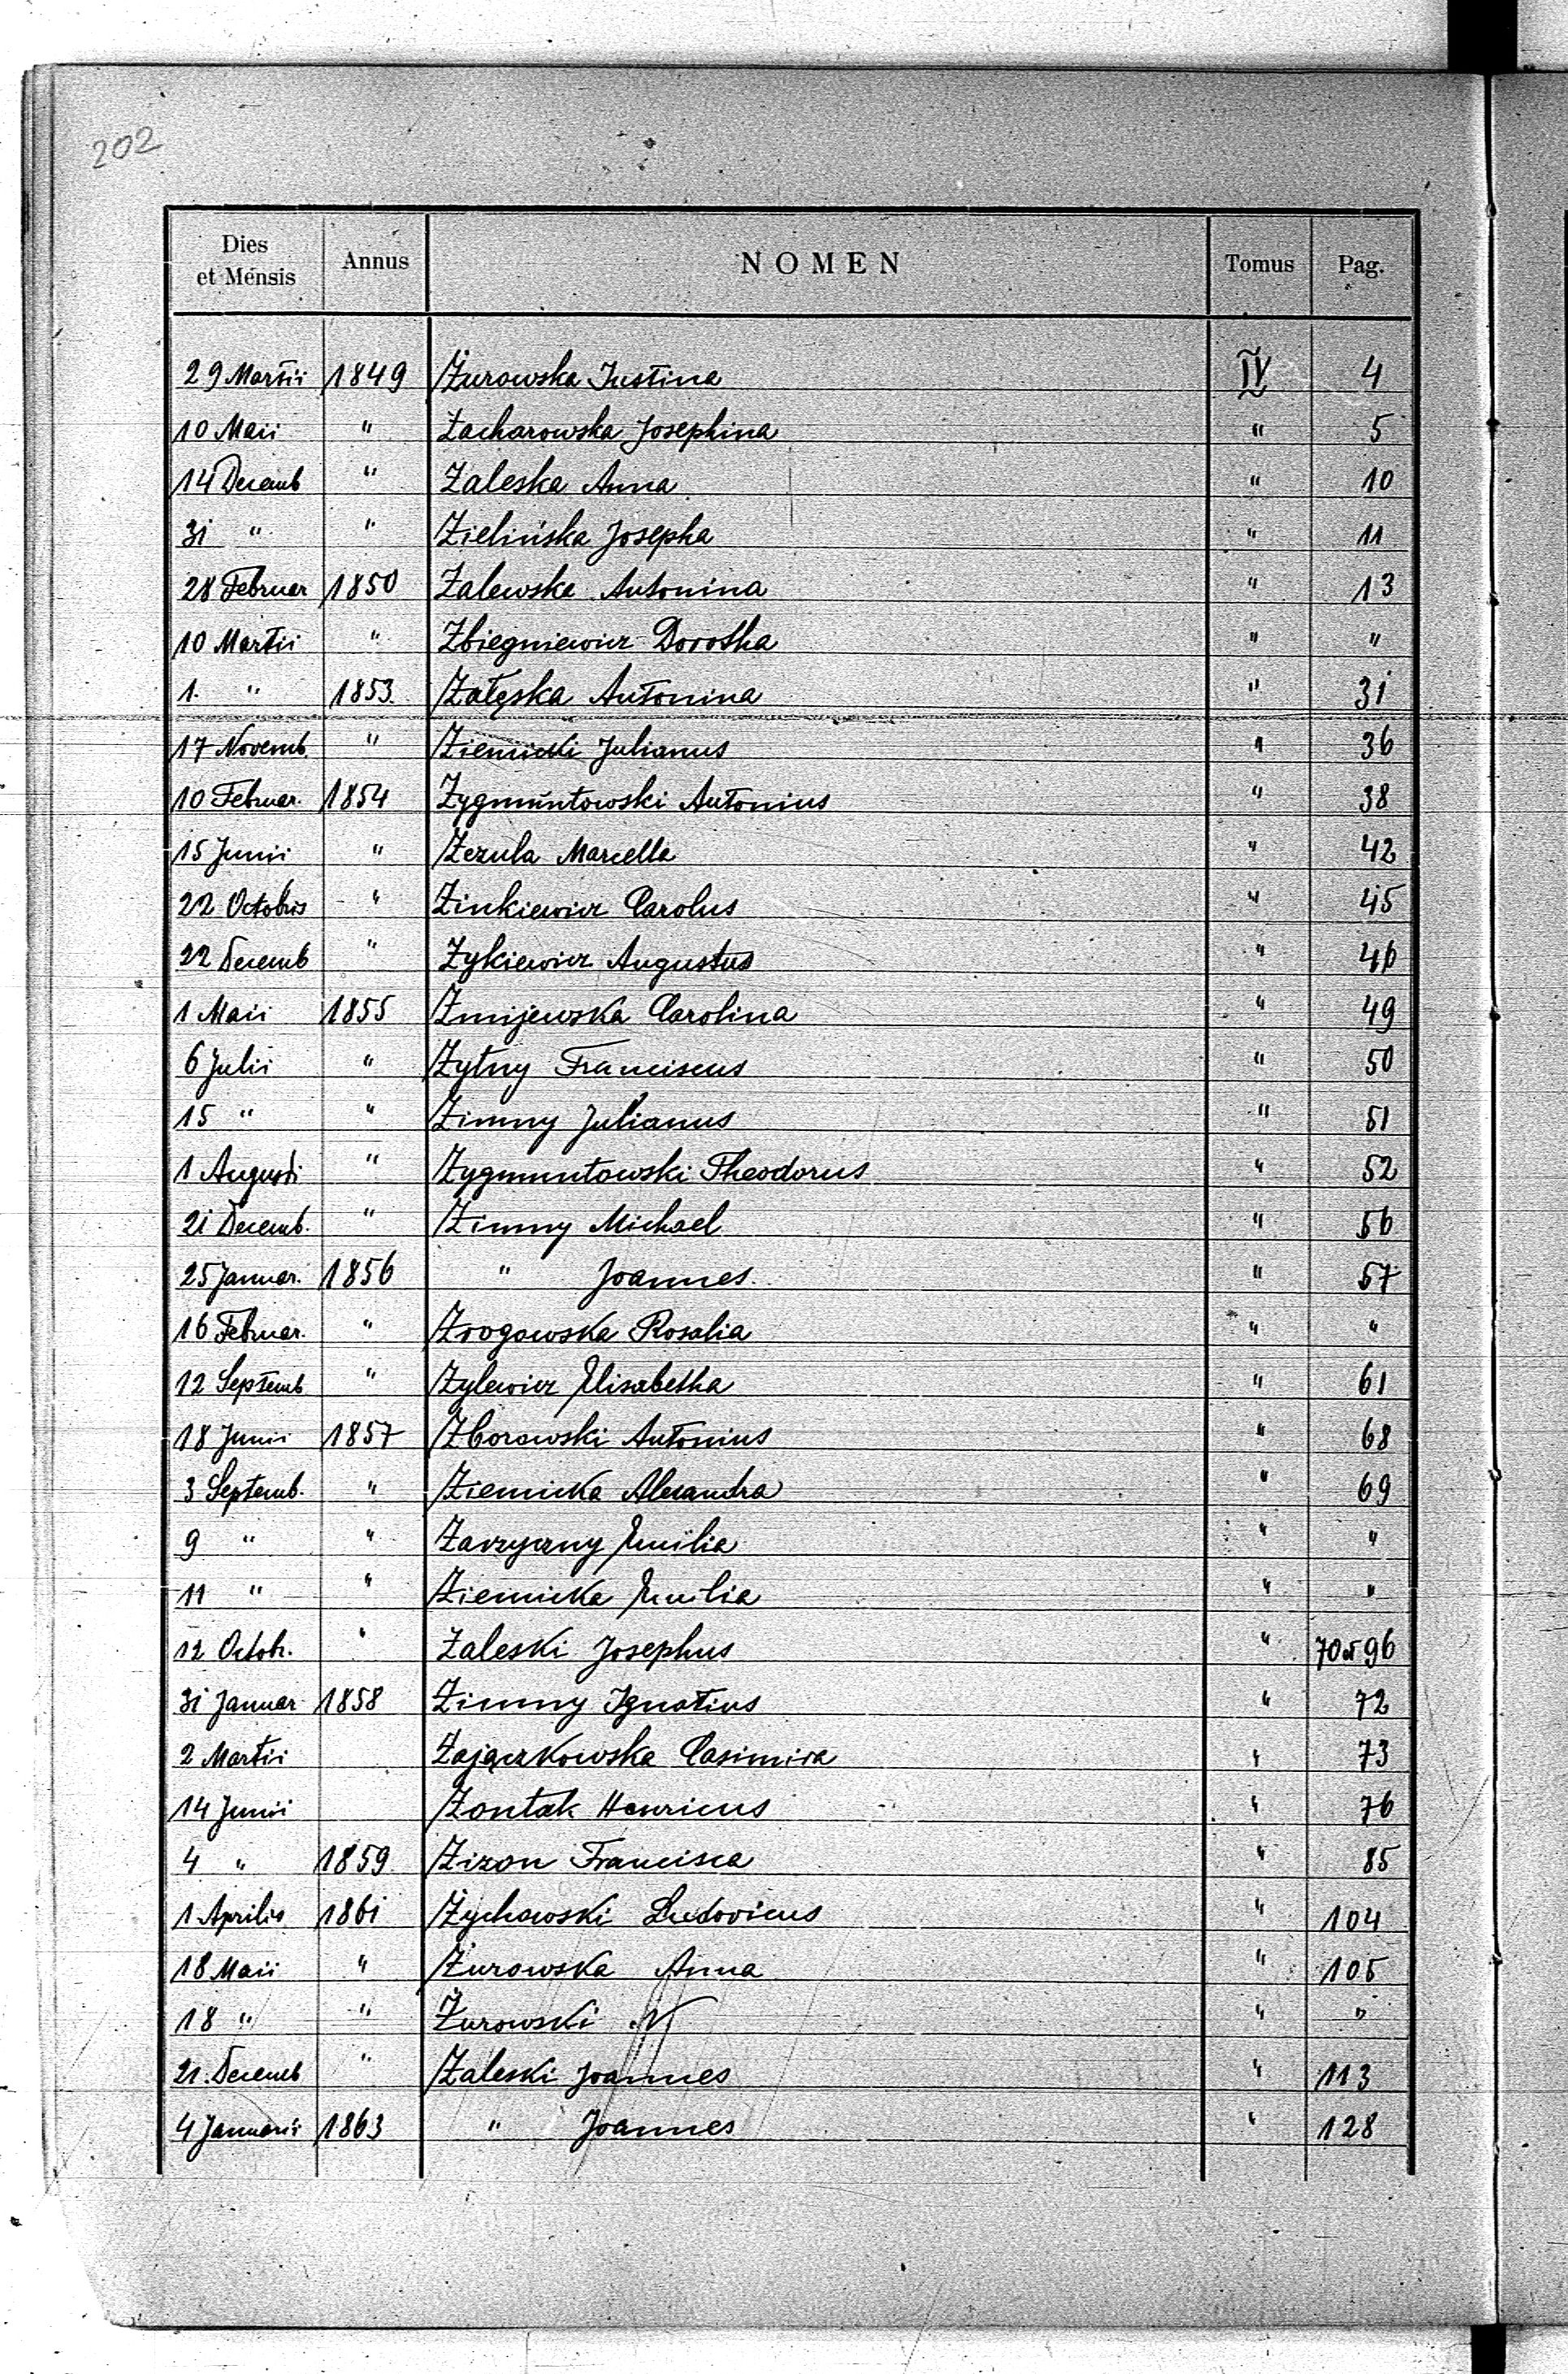 202
Dies et Mensis Annus NOMEN Tomus Pag.
29 Martii 1849 Żurowska Justina IV 4
10 Maii " Zacharowska Josephina " 5
14 Decemb " Zaleska Anna " 10
31 " " Zielińska Josepha " 11
28 Februar 1850 Zalewska Antonina " 13
10 Martii " Zbiegniewicz Dorotha " "
1. " 1853. Załęska Antonina " 31
17 Novemb. " Ziemicki Julianus " 36
10 Februar. 1854 Zygmuntowski Antonius " 38
15 Junii " Zezula Marcella " 42
22 Octobris " Zinkiewicz Carolus " 45
22 Decemb " Zykiewicz Augustus " 46
1 Maii 1855 Zmijewska Carolina " 49
6 Julii " Zytny Franciscus " 50
15 " " Zimny Julianus " 51
1 Augusti " Zygmuntowski Theodorus " 52
21 Decemb. " Zimny Michael " 56
25 Januar. 1856 " Joannes " 57
16 Februar. " Zrogowska Rosalia " "
12 Septemb " Zylewicz Elisabetha " 61
18 Junii 1857 Zborowski Antonius " 68
3 Septemb. " Ziemicka Alexandra " 69
9 " " Emilia " "
11 " " Ziemicka Emilia " "
12 Octobr. " Zaleski Josephus " 70 et 96
31 Januar 1858 Zimny Ignatius " 72
2 Martii Zajączkowska Casimira " 73
14 Junii Zontak Henricus " 76
4 " 1859 Zizon Francisca " 85
1 Aprilis 1861 Żychowski Ludovicus " 104
18 Maii " Żurowska Anna " 105
18 " " Żurowski N " "
21. Decemb " Zaleski Joannes " 113
4 Januarii 1863 " Joannes " 128